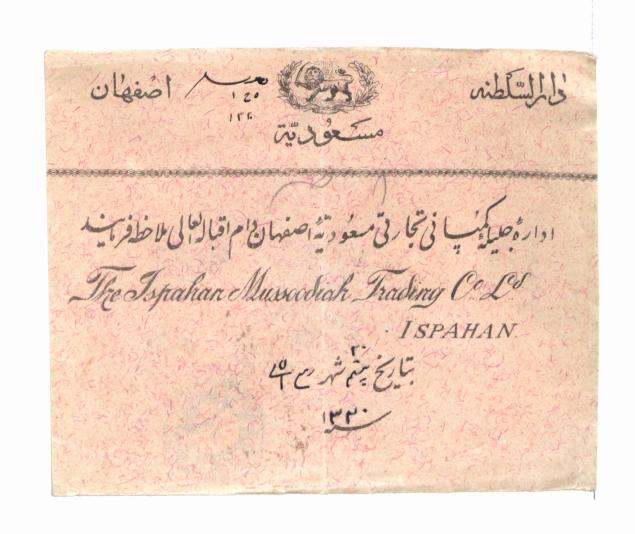 دارالسّلطنه اصفهان
مسعودیّة
ادارهٔ جلیلهٔ کمپانی تجارتی مسعودیّهٔ اصفهان دام اقباله العالی ملاحظه فرمایند
The Ispahan Mussoodiah Trading Co Ld
ISPAHAN
۲۰
بتاریخ شهر
سنه ۱۳۲۰